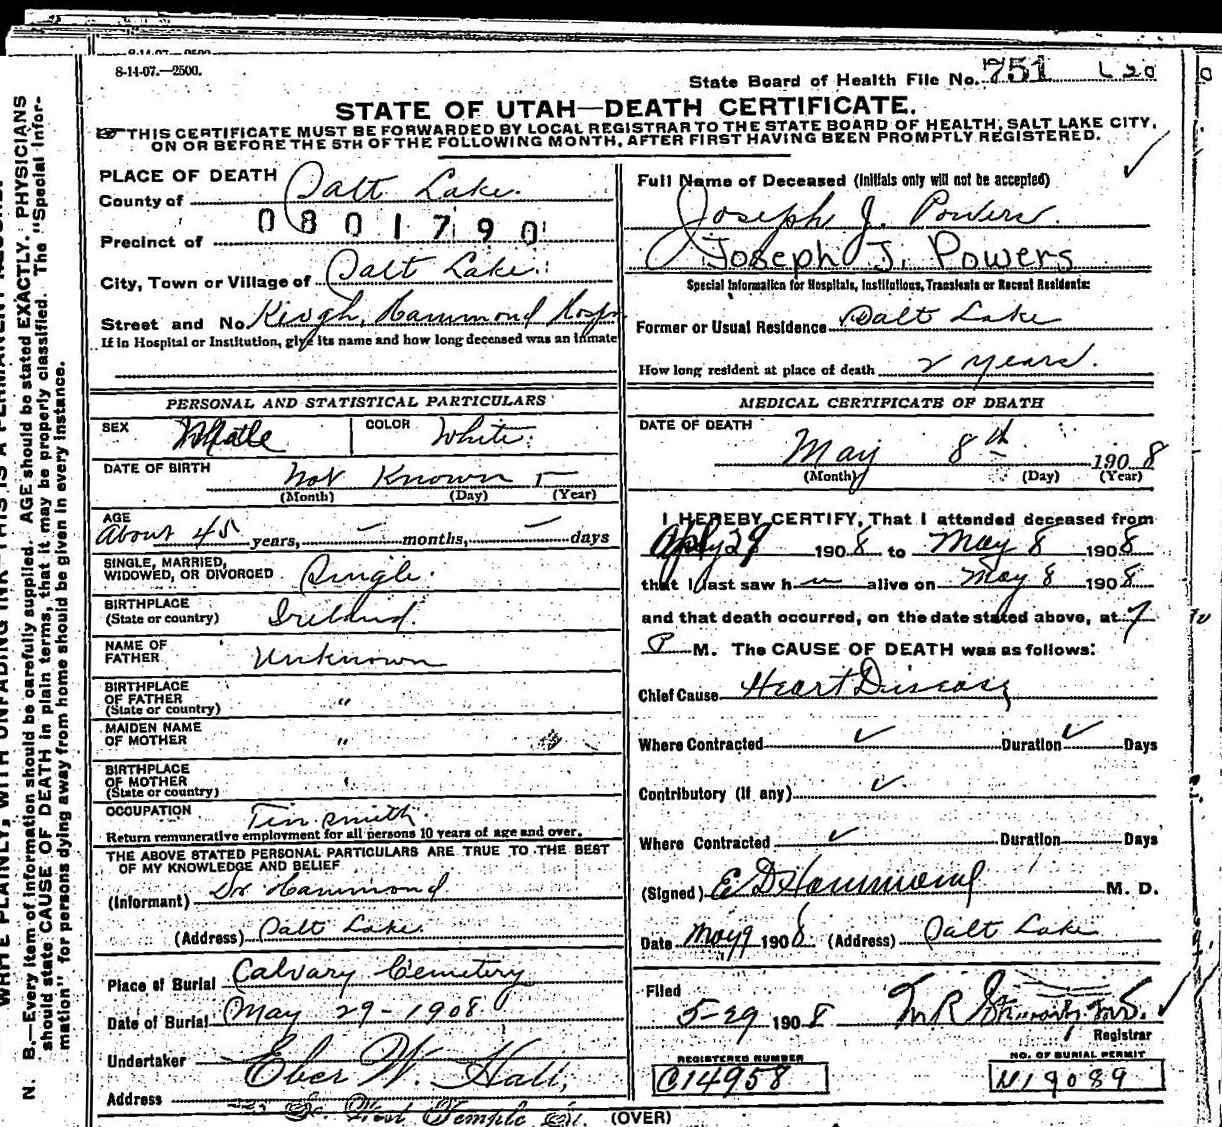 8-14-07.—2500.
State Board of Health File No. 751 L 20
STATE OF UTAH—DEATH CERTIFICATE.
THIS CERTIFICATE MUST BE FORWARDED BY LOCAL REGISTRAR TO THE STATE BOARD OF HEALTH, SALT LAKE CITY,
ON OR BEFORE THE 5TH OF THE FOLLOWING MONTH, AFTER FIRST HAVING BEEN PROMPTLY REGISTERED.
PLACE OF DEATH
County of Salt Lake.
0801790
Precinct of
City, Town or Village of Salt Lake.
Street and No. Keogh, Hammond Hosp
If in Hospital or Institution, give its name and how long deceased was an inmate
Full Name of Deceased (Initials only will not be accepted)
Joseph J. Powers.
Joseph J. Powers
Special Information for Hospitals, Institutions, Transients or Recent Residents:
Former or Usual Residence Salt Lake
How long resident at place of death 2 years.
PERSONAL AND STATISTICAL PARTICULARS
SEX Male COLOR White.
DATE OF BIRTH not Known —
(Month) (Day) (Year)
AGE
About 45 years, — months, — days
SINGLE, MARRIED,
WIDOWED, OR DIVORCED Single.
BIRTHPLACE
(State or country) Ireland.
NAME OF
FATHER Unknown
BIRTHPLACE
OF FATHER
(State or country) "
MAIDEN NAME
OF MOTHER "
BIRTHPLACE
OF MOTHER
(State or country) "
OCCUPATION Tin smith.
Return remunerative employment for all persons 10 years of age and over.
THE ABOVE STATED PERSONAL PARTICULARS ARE TRUE TO THE BEST
OF MY KNOWLEDGE AND BELIEF
(Informant) Dr Hammond
(Address) Salt Lake.
Place of Burial Calvary Cemetery
Date of Burial May 29-1908.
Undertaker Eber W. Hall,
Address So. West Temple St.
MEDICAL CERTIFICATE OF DEATH
DATE OF DEATH
May 8th 1908
(Month) (Day) (Year)
I HEREBY CERTIFY, That I attended deceased from
29 1908 to May 8 1908
that I last saw h im alive on May 8 1908
and that death occurred, on the date stated above, at 7
P M. The CAUSE OF DEATH was as follows:
Chief Cause Heart Disease
Where Contracted ✓ Duration ✓ Days
Contributory (if any) ✓
Where Contracted ✓ Duration Days
(Signed) E D Hammond M. D.
Date May 9 1908 (Address) Salt Lake
Filed
5-29 1908
Registrar
REGISTERED NUMBER
C14958
NO. OF BURIAL PERMIT
N19089
(OVER)
N. B.—Every item of information should be carefully supplied. AGE should be stated EXACTLY. PHYSICIANS
should state CAUSE OF DEATH in plain terms, that it may be properly classified. The "Special Infor-
mation" for persons dying away from home should be given in every instance.